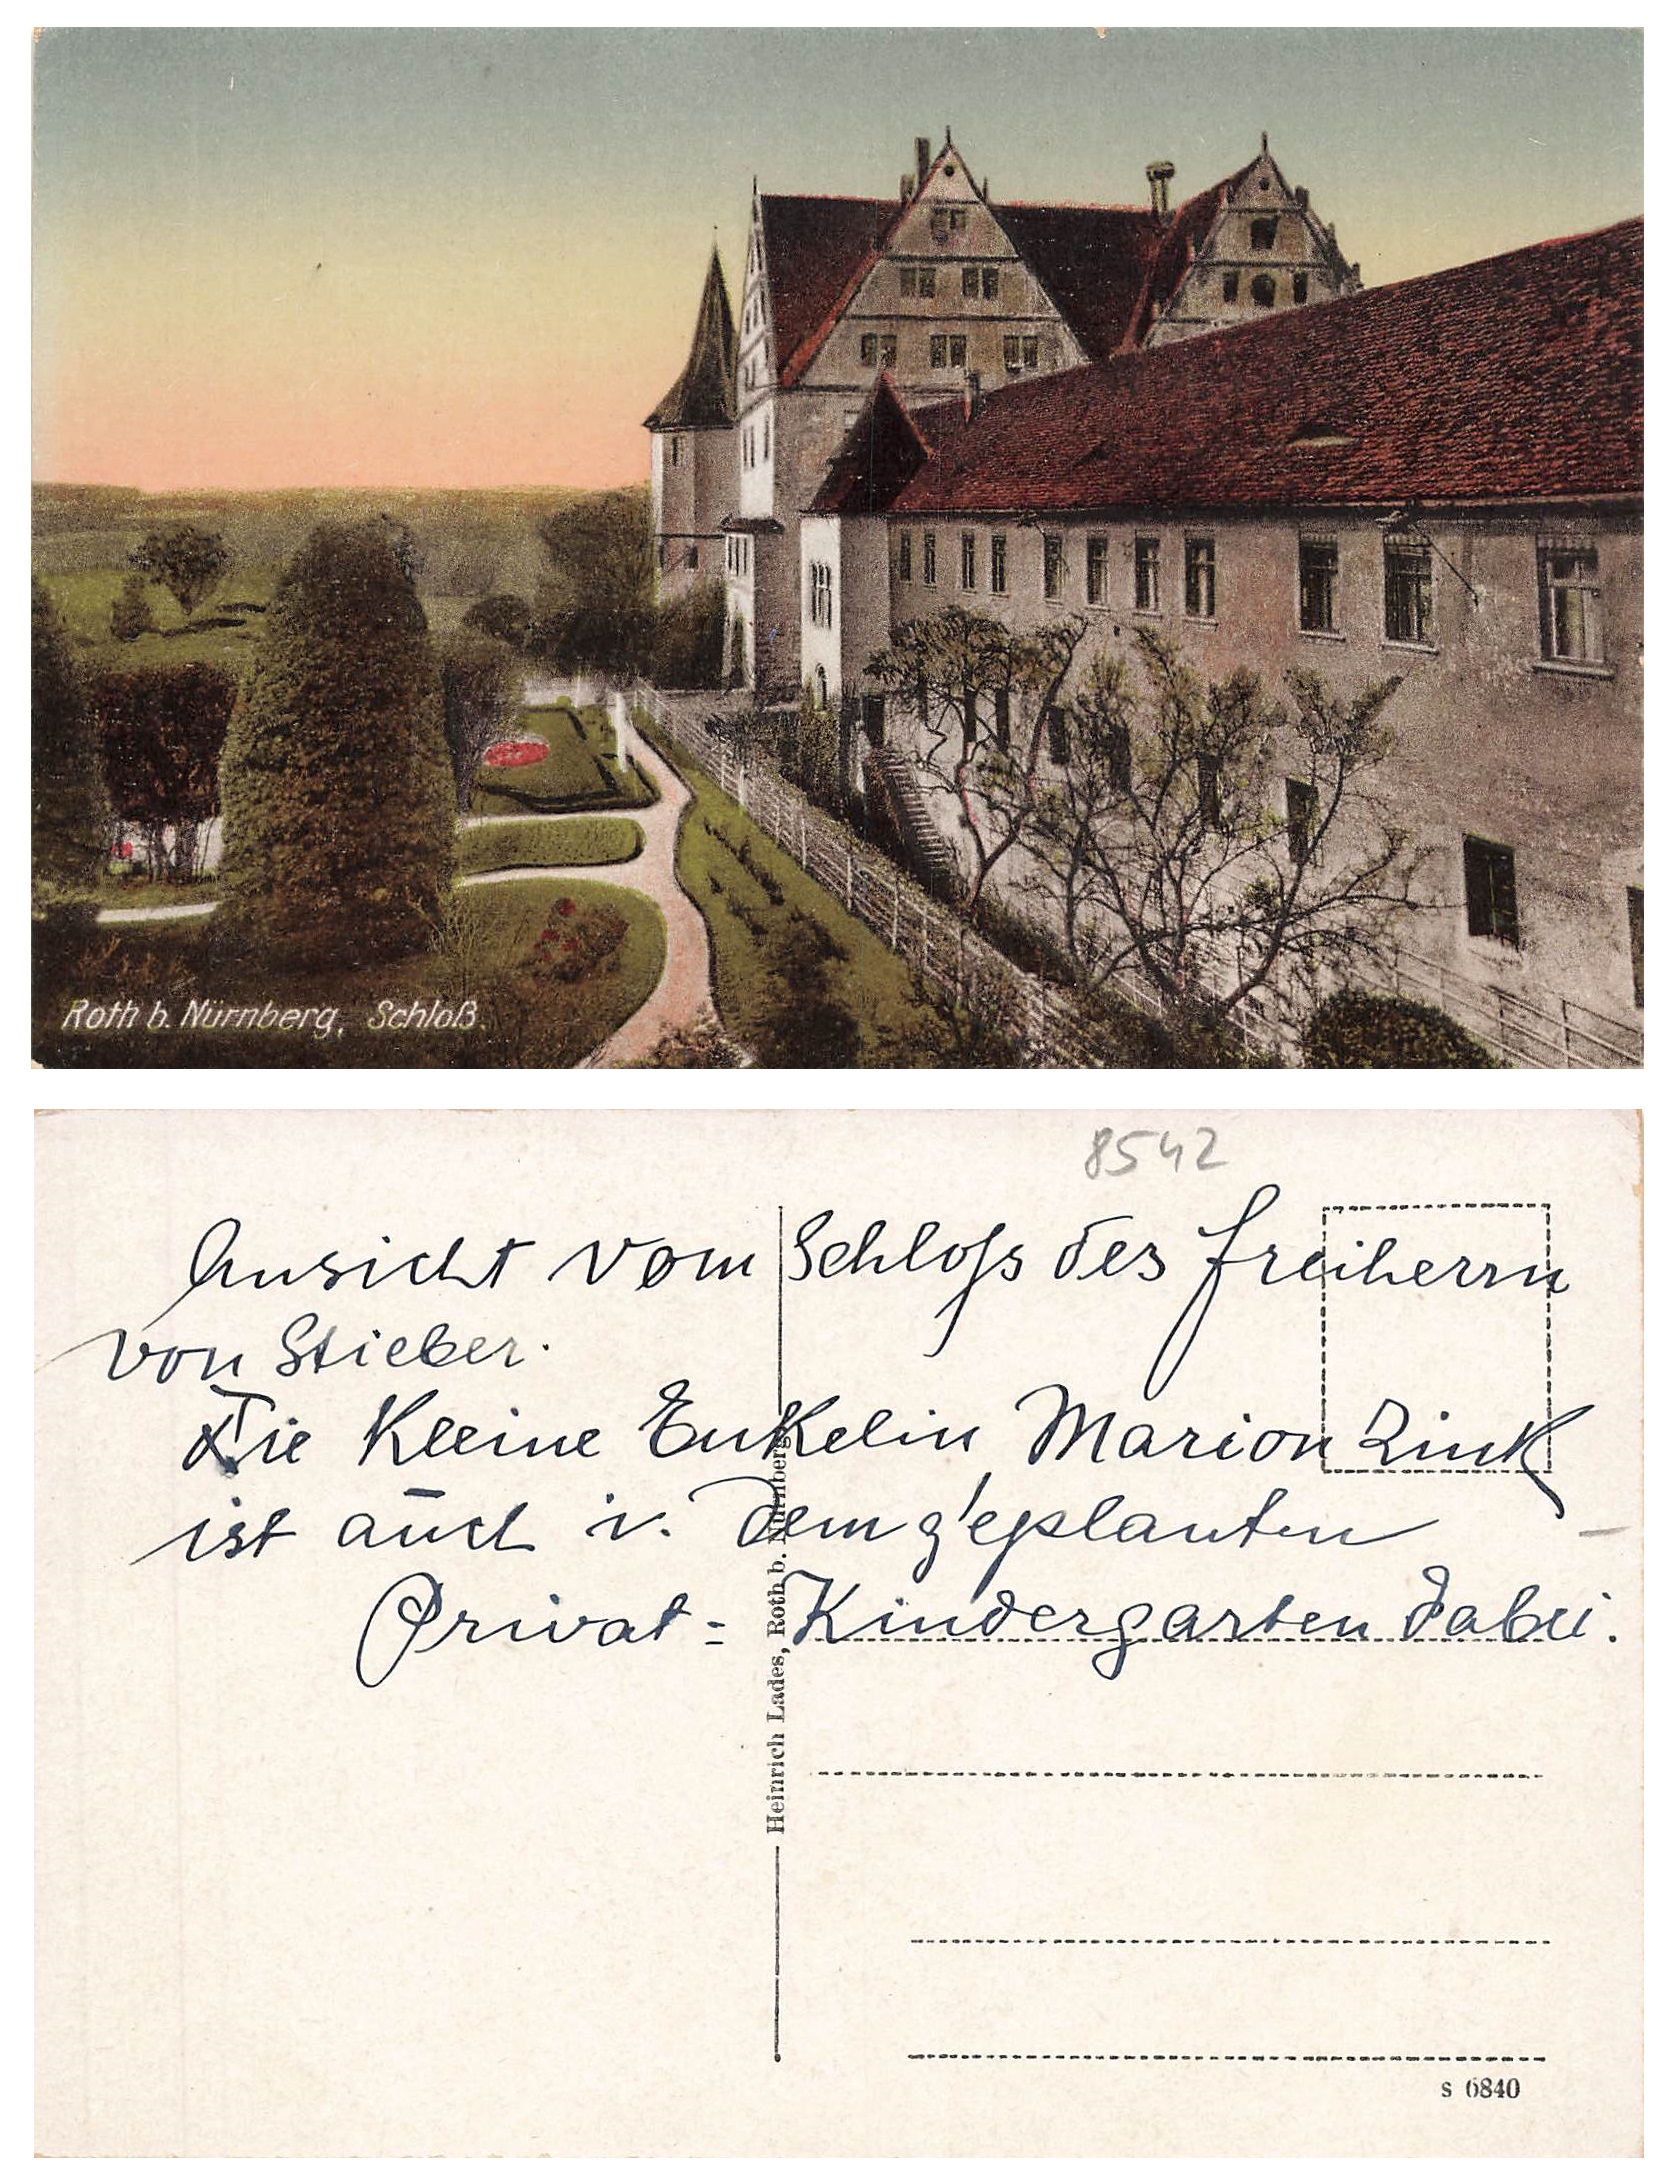 Roth b. Nürnberg, Schloß.
8542
Ansicht vom Schloss des Freiherrn
von Stieber.
Die Kleine Enkelin Marion Zink
ist auch i. dem geplanten
Privat = Kindergarten dabei.
Heinrich Lades, Roth b. Nürnberg.
s 6840